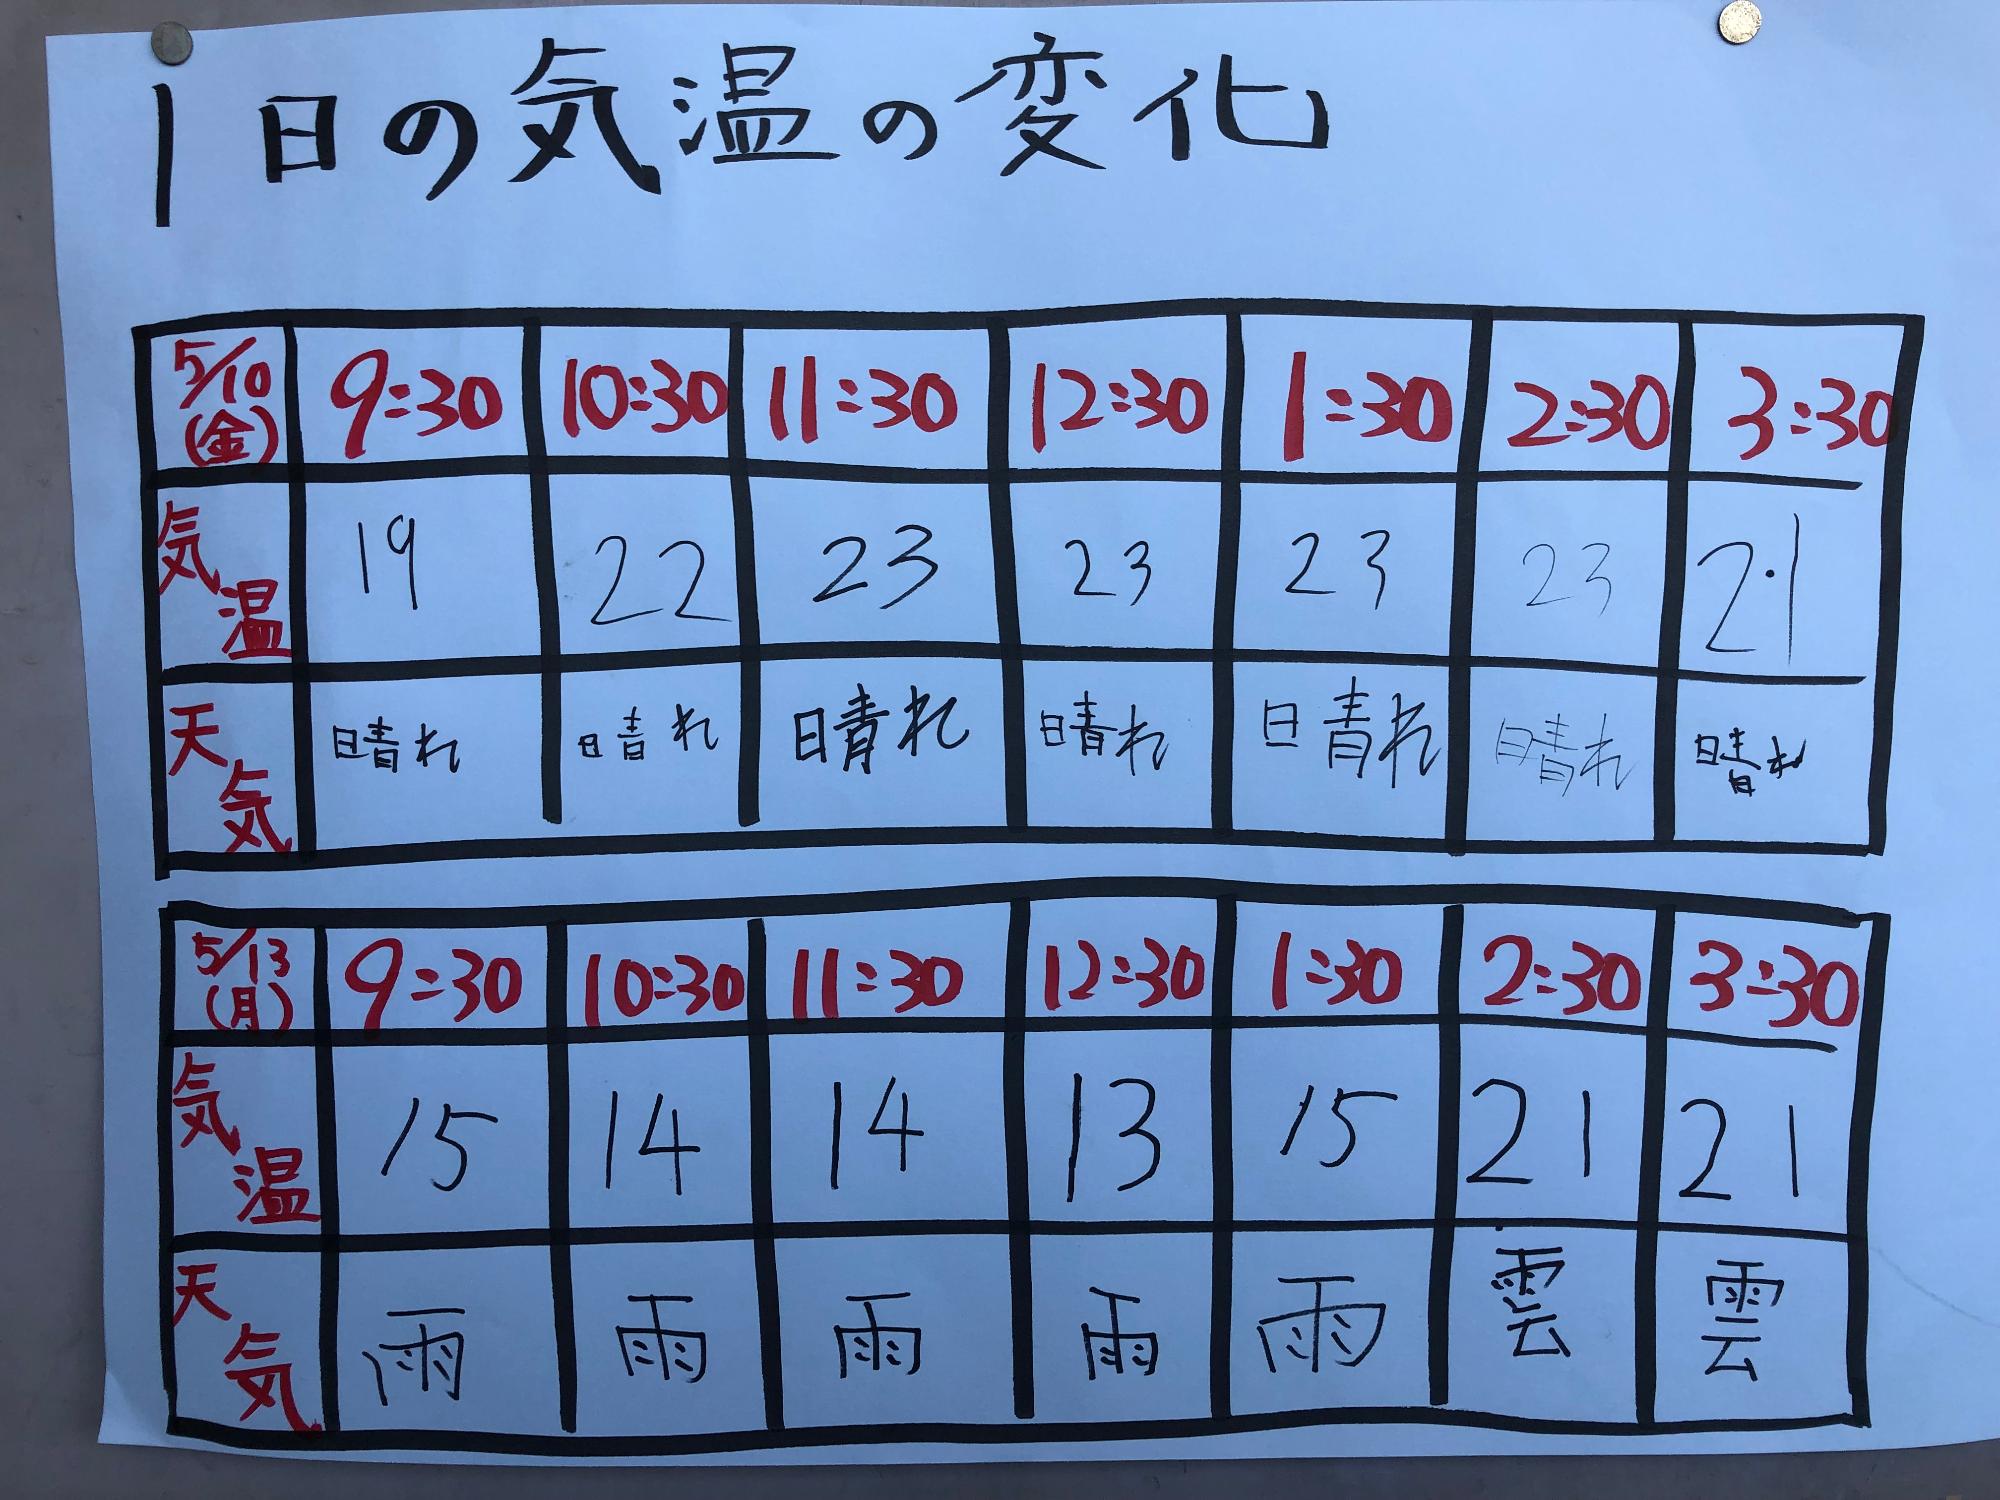 1日の気温の変化
5/10(金) 9:30 10:30 11:30 12:30 1:30 2:30 3:30
気温 19 22 23 23 23 23 21
天気 晴れ 晴れ 晴れ 晴れ 晴れ 晴れ 晴れ
5/13(月) 9:30 10:30 11:30 12:30 1:30 2:30 3:30
気温 15 14 14 13 15 21 21
天気 雨 雨 雨 雨 雨 雲 雲